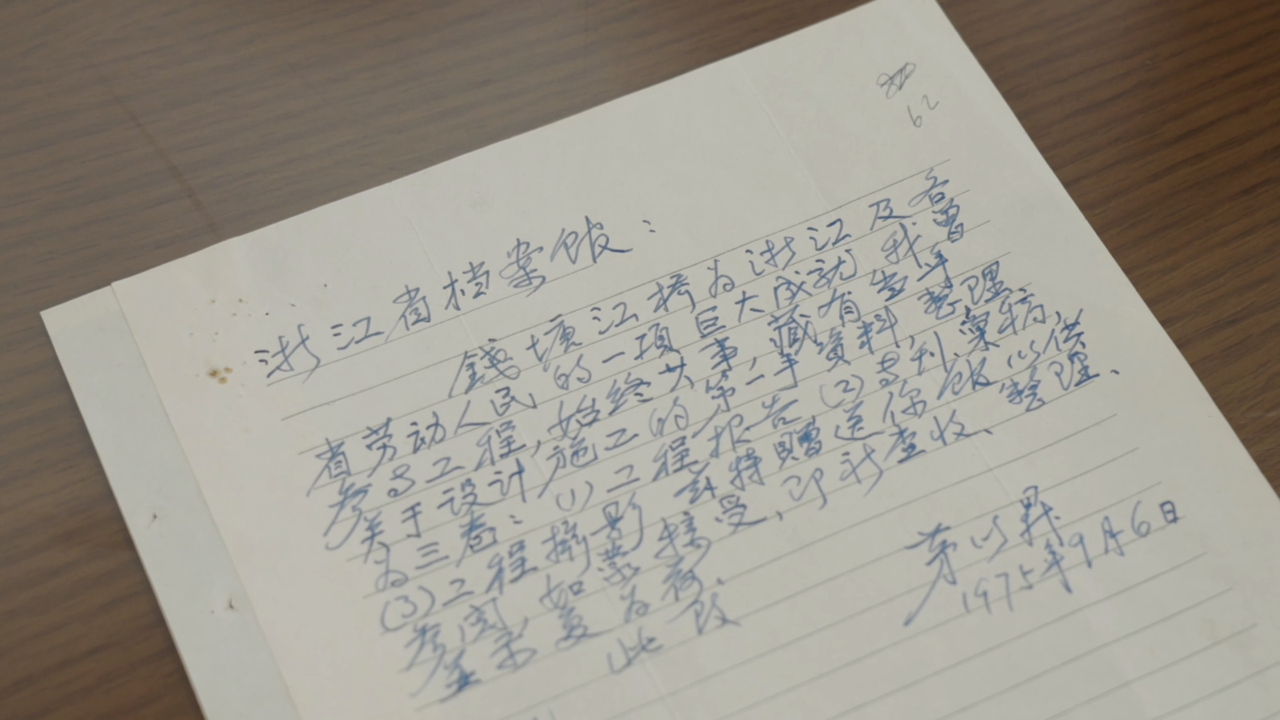 62
浙江省档案馆：
錢塘江桥为浙江及各
省劳动人民的一項巨大成就，我曾
参与工程，始终其事，藏有当年
关于设计施工的第一手資料，整理
为三卷：(1)工程报告，(2)专刊彙稿，
(3)工程摄影，兹特贈送你馆以供
参阅，如蒙接受，即祈查收、整理、
並示复为荷．
此致
茅以昇
1975年9月6日